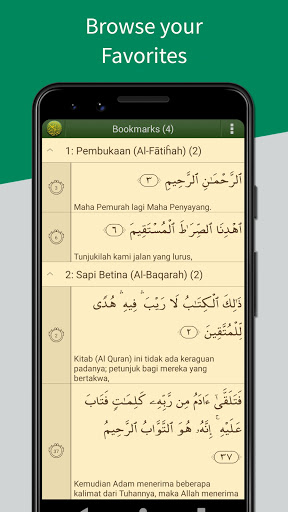 Browse your
Favorites
Bookmarks (4)
1: Pembukaan (Al-Fātiĥah) (2)
ٱلرَّحْمَـٰنِ ٱلرَّحِيمِ ٣
3
Maha Pemurah lagi Maha Penyayang.
ٱهْدِنَا ٱلصِّرَٰطَ ٱلْمُسْتَقِيمَ ٦
6
Tunjukilah kami jalan yang lurus,
2: Sapi Betina (Al-Baqarah) (2)
ذَٰلِكَ ٱلْكِتَـٰبُ لَا رَيْبَ ۛ فِيهِ ۛ هُدًى
لِّلْمُتَّقِينَ ٢
2
Kitab (Al Quran) ini tidak ada keraguan
padanya; petunjuk bagi mereka yang
bertakwa,
فَتَلَقَّىٰٓ ءَادَمُ مِن رَّبِّهِۦ كَلِمَـٰتٍ فَتَابَ
عَلَيْهِ ۚ إِنَّهُۥ هُوَ ٱلتَّوَّابُ ٱلرَّحِيمُ
37
٣٧
Kemudian Adam menerima beberapa
kalimat dari Tuhannya, maka Allah menerima